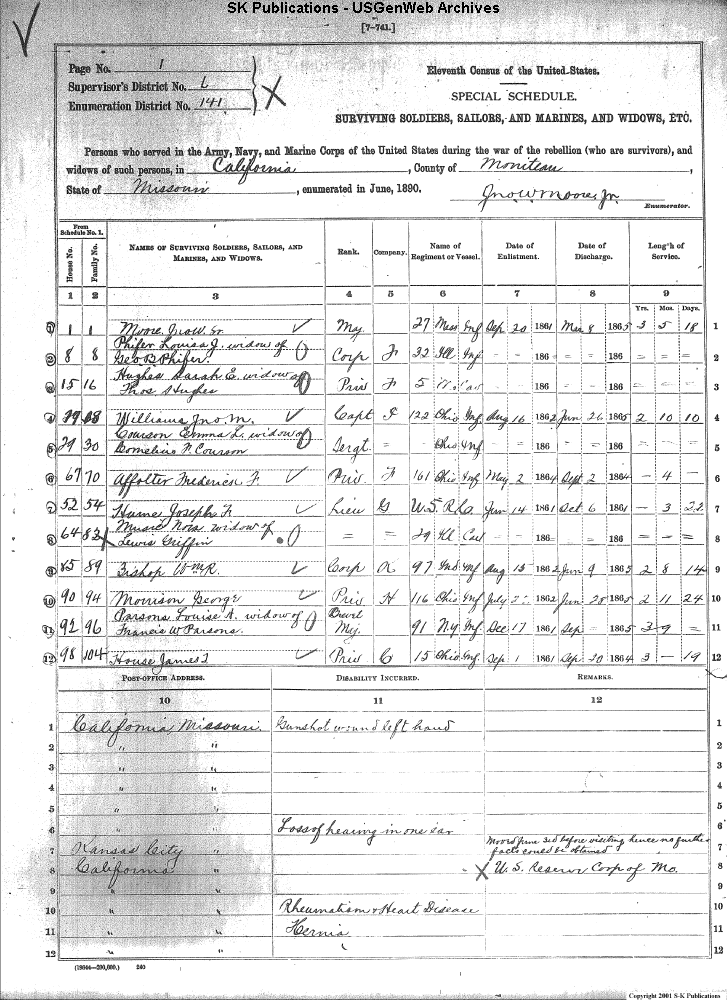 SK Publications - USGenWeb Archives
[7-741.]
Page No. 1
Supervisor's District No. 6
Enumeration District No. 141
Eleventh Census of the United States.
SPECIAL SCHEDULE.
SURVIVING SOLDIERS, SAILORS, AND MARINES, AND WIDOWS, ETC.
Persons who served in the Army, Navy, and Marine Corps of the United States during the war of the rebellion (who are survivors), and
widows of such persons, in California, County of Moniteau,
State of Missouri, enumerated in June, 1890. Jno W Moore, Jr.
Enumerator.
From Schedule No. 1. House No. Family No. NAMES OF SURVIVING SOLDIERS, SAILORS, AND MARINES, AND WIDOWS. Rank. Company. Name of Regiment or Vessel. Date of Enlistment. Date of Discharge. Length of Service.
1 2 3 4 5 6 7 8 9
Yrs. Mos. Days.
1 1 1 Moore Jno W. Sr Maj 27 Inf Sep 20 1861 Mar 8 1865 3 5 18 1
2 8 8 Phifer Louisa J. widow of
Geo B Phifer. Corp F 32 Ill Inf - - 186 - - 186 = = = 2
3 15 16 Hughes Sarah E. widow of
Thos Hughes Priv F 5 Cav - - 186 - - 186 - - - 3
4 Williams Jno. M. Capt 122 Ohio Inf Aug 16 1862 Jun 26 1865 2 10 10 4
5 29 30 Courson Emma L. widow of
Cornelius F. Courson Sergt = Ohio Inf 186 186 5
6 67 70 Affolter Frederick F. Priv. F 161 Ohio Inf May 2 1864 Sept 2 1864 - 4 - 6
7 52 54 Hume Joseph F. Lieu G U.S. R. Jun 14 1861 Oct 6 1861 - 3 22 7
8 64 widow of
Lewis Griffin = = 29 Ill Cav 186 186 8
9 85 89 Bishop Wm R. Corp K 97 Ind Inf Aug 15 1862 Jun 9 1865 2 8 14 9
10 90 94 Morrison George Priv H 116 Ohio Inf July 1862 Jun 28 1865 2 11 24 10
11 92 96 Parsons, Louise A. widow of
Francis W Parsons. Brevet Maj. 91 N.Y. Inf Dec 17 1861 Sep = 1865 3 9 = 11
12 98 104 House James Priv C 15 Ohio Inf Sep 1 1861 Sep 20 1864 3 - 19 12
POST-OFFICE ADDRESS. DISABILITY INCURRED. REMARKS.
10 11 12
1 California Missouri. Gunshot wound left hand 1
2 " " 2
3 " " 3
4 " " 4
5 " " 5
6 " " Loss of hearing in one ear 6
7 Kansas City " Moved June 3rd before visiting hence no further
facts could be obtained 7
8 California " X U.S. Reserve Corp of Mo. 8
9 " " 9
10 " " Rheumatism & Heart Disease 10
11 " " Hernia 11
12 " " 12
(19844—200,000.) 240
Copyright 2001 S-K Publications